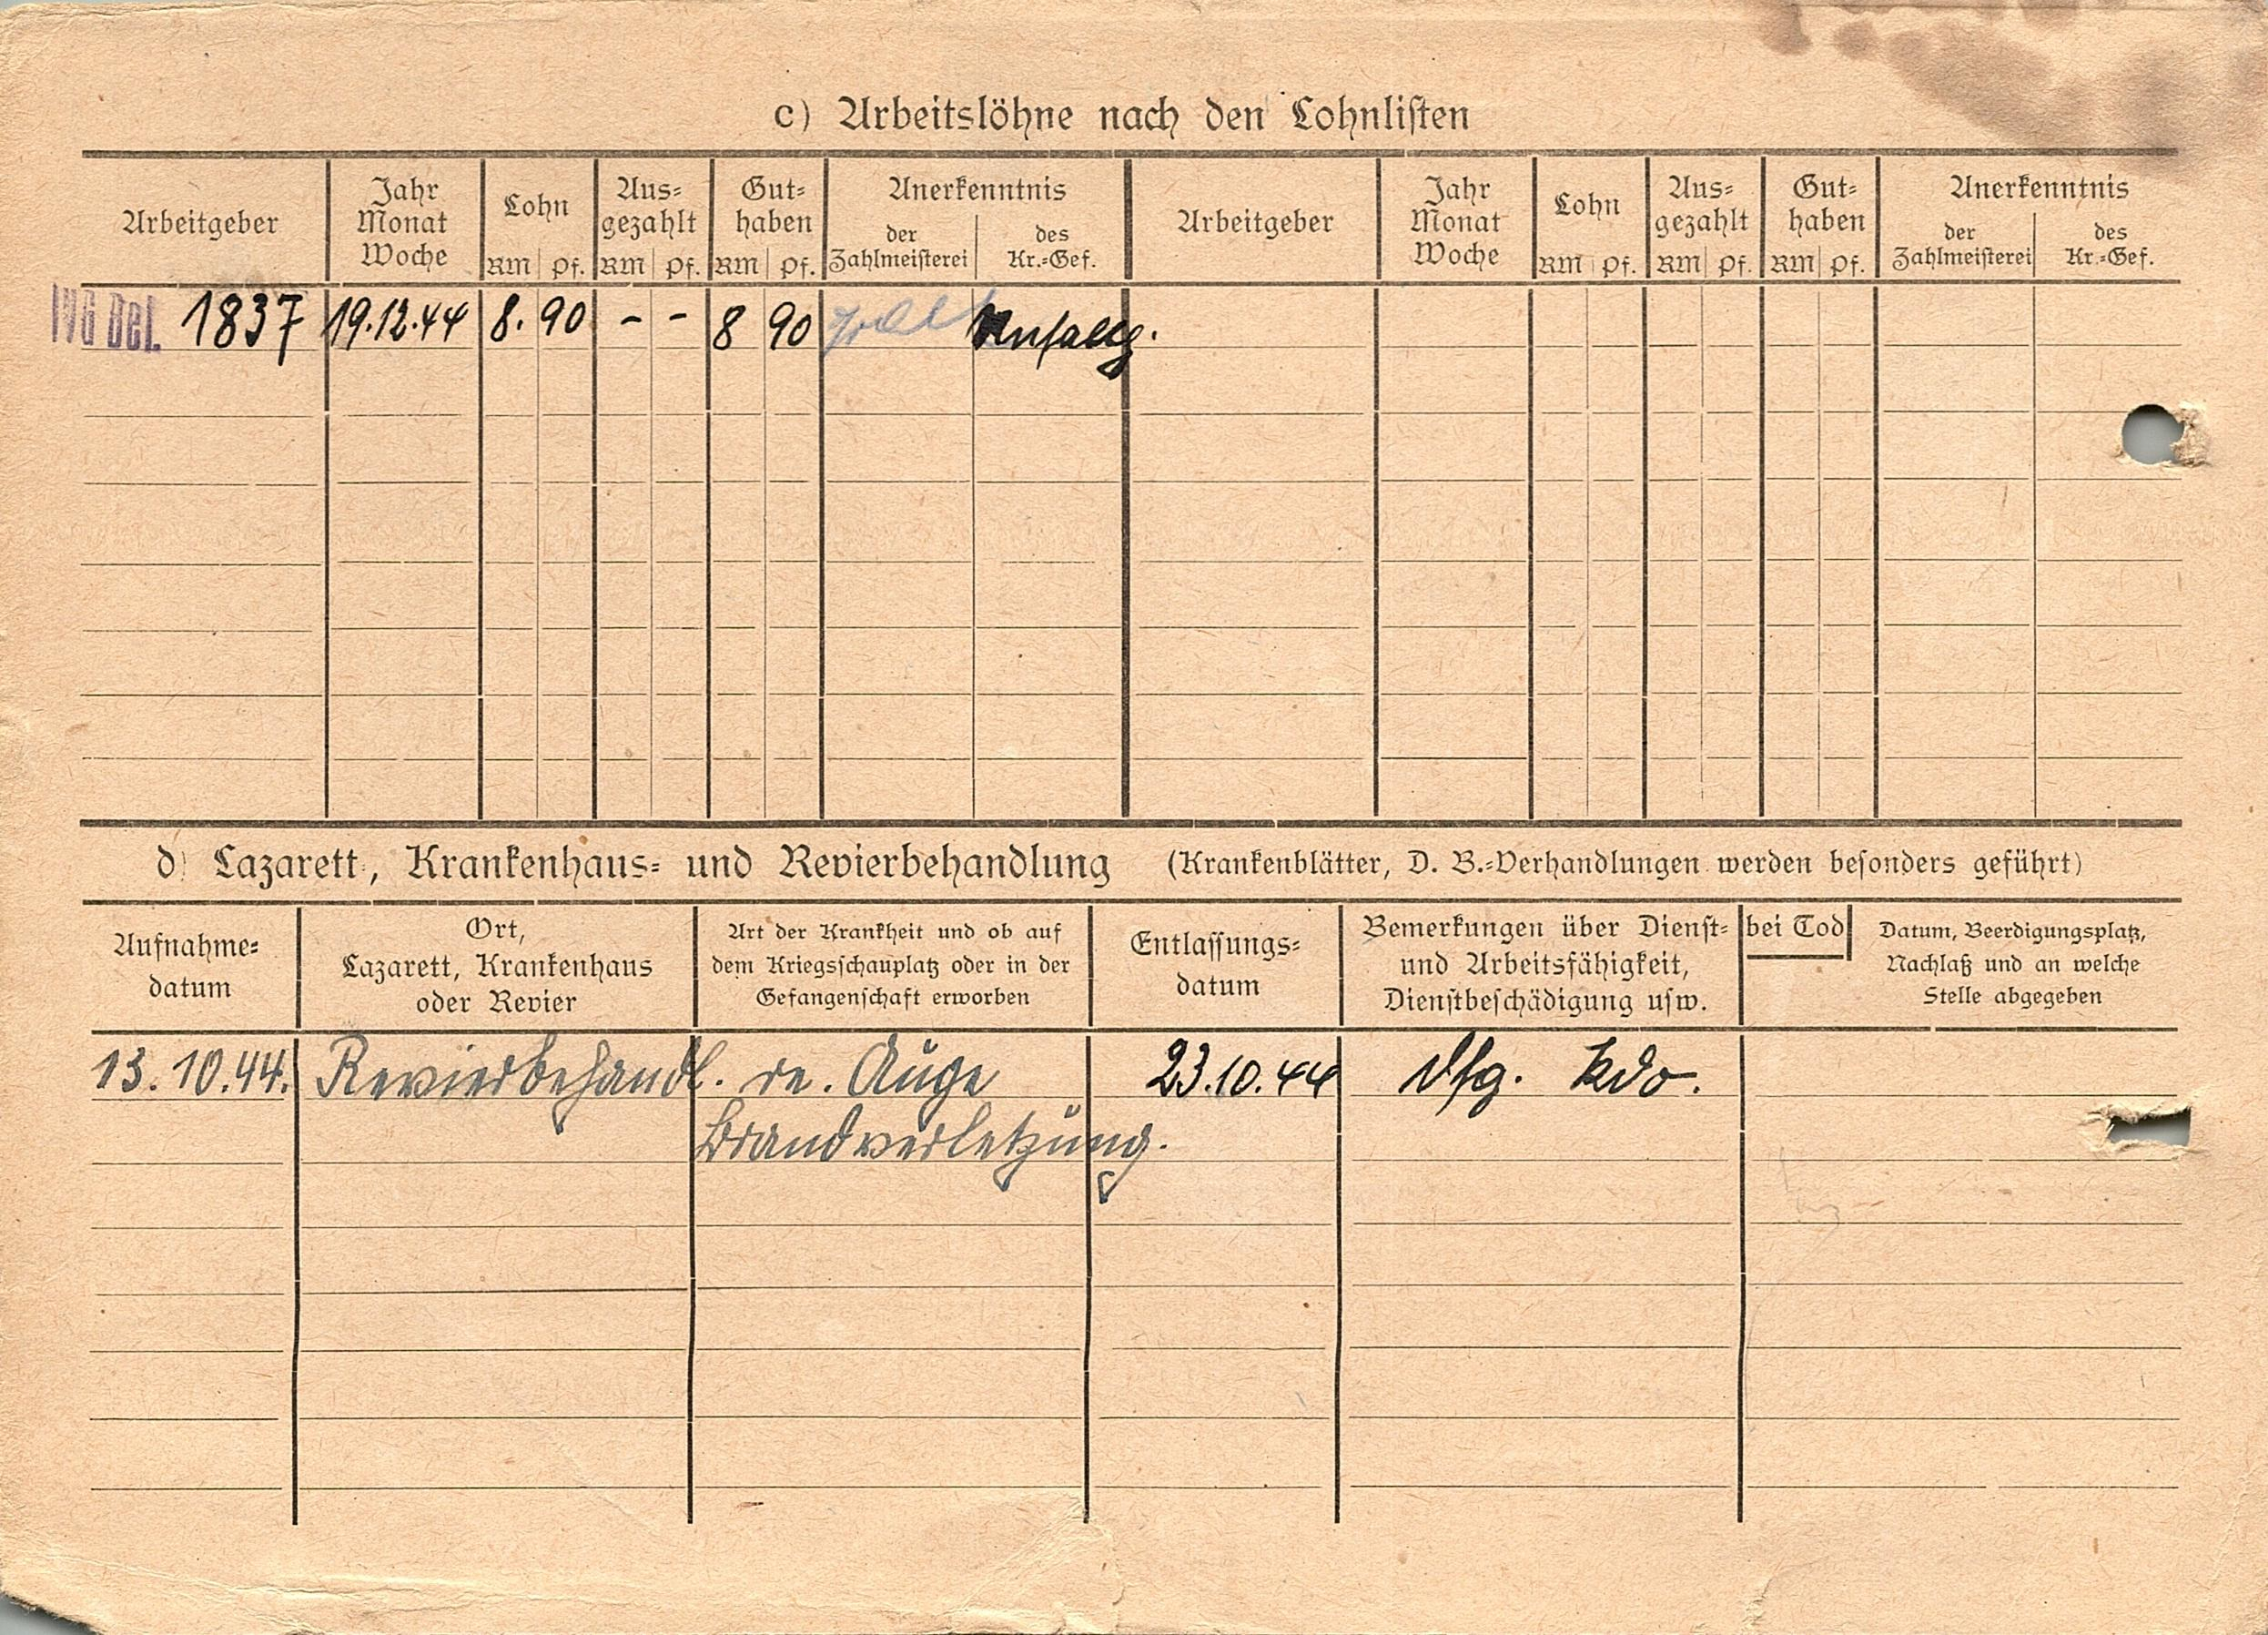 c) Arbeitslöhne nach den Lohnlisten
Arbeitgeber Jahr Monat Woche Lohn RM Pf. Aus-gezahlt RM Pf. Gut-haben RM Pf. Anerkenntnis der Zahlmeisterei des Kr.-Gef. Arbeitgeber Jahr Monat Woche Lohn RM Pf. Aus-gezahlt RM Pf. Gut-haben RM Pf. Anerkenntnis der Zahlmeisterei des Kr.-Gef.
1837 19.12.44 8. 90 - - 8 90
d) Lazarett, Krankenhaus- und Revierbehandlung (Krankenblätter, D. B.-Verhandlungen werden besonders geführt)
Aufnahme-
datum
Ort,
Lazarett, Krankenhaus
oder Revier
Art der Krankheit und ob auf
dem Kriegsschauplatz oder in der
Gefangenschaft erworben
Entlassungs-
datum
Bemerkungen über Dienst-
und Arbeitsfähigkeit,
Dienstbeschädigung usw.
bei Tod
Datum, Beerdigungsplatz,
Nachlaß und an welche
Stelle abgegeben
13.10.44. Revierbehandl. re. Auge 23.10.44 Kdo.
Brandverletzung.